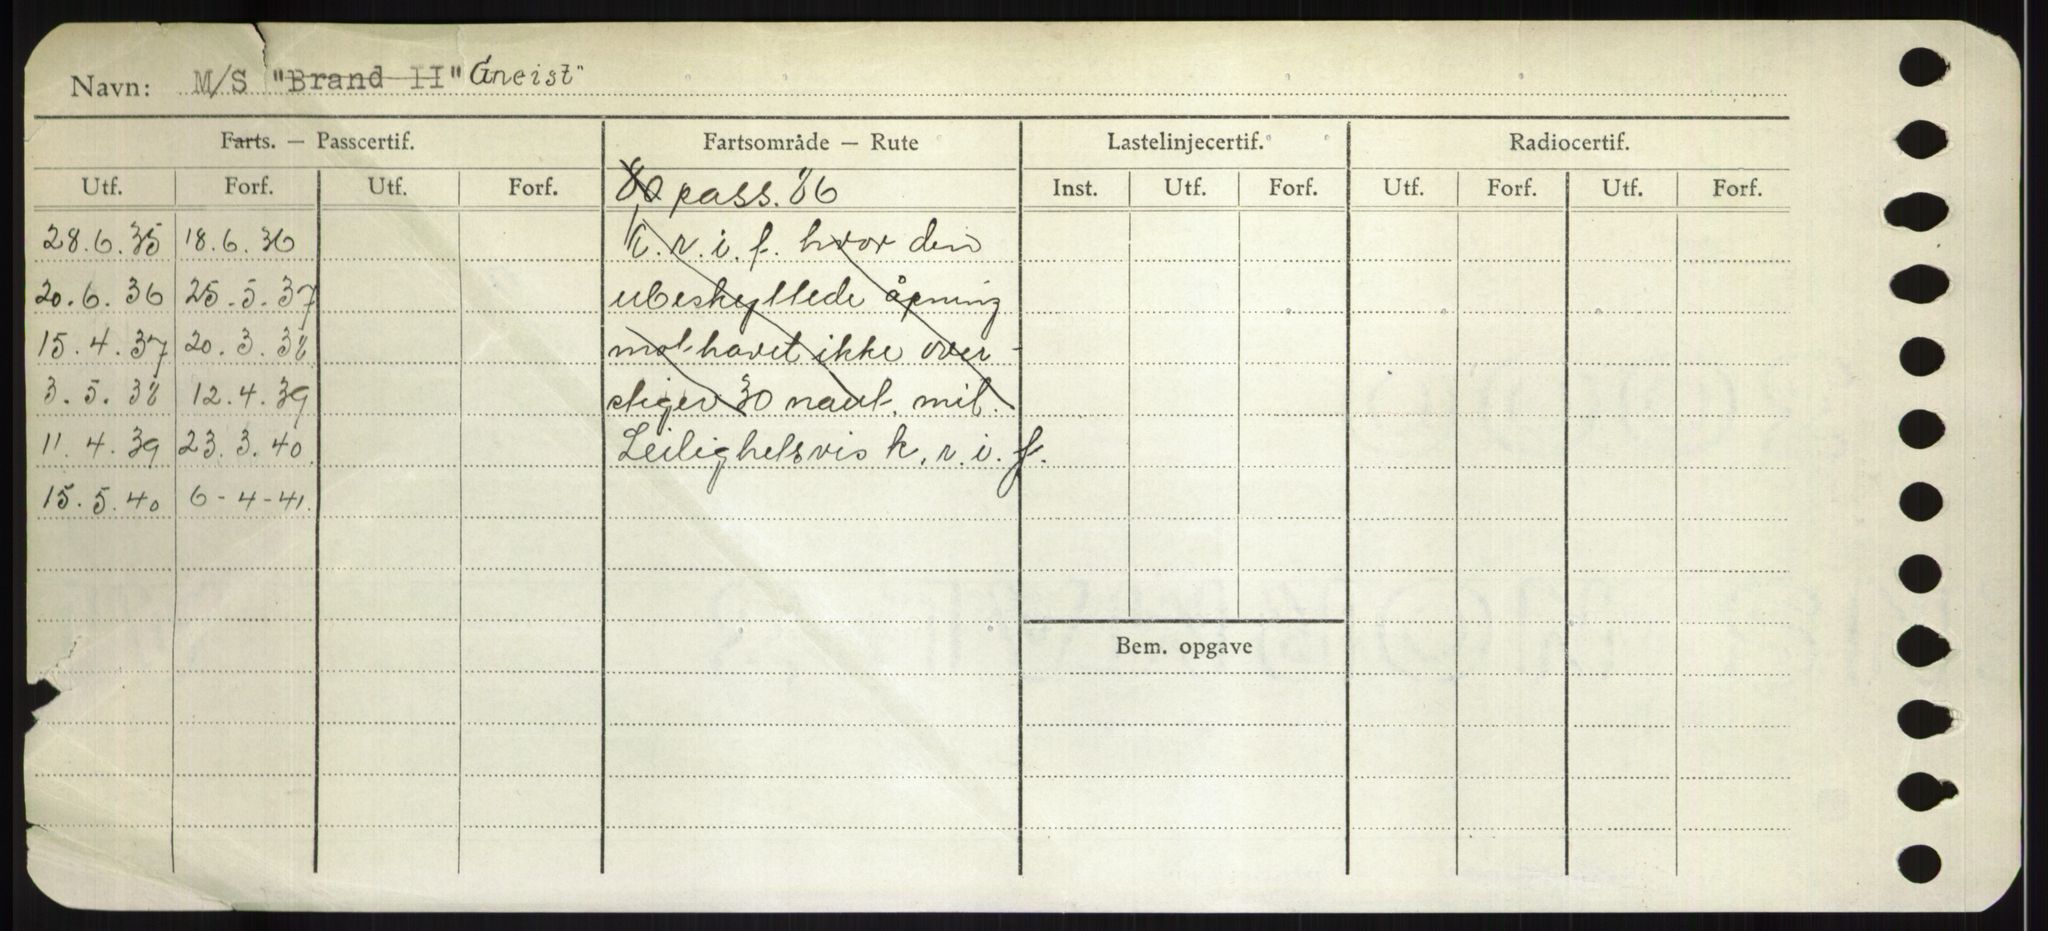 Navn: M/S "Brand II" Gneist"
Farts. — Passcertif. Fartsområde — Rute Lastelinjecertif. Radiocertif.
Utf. Forf. Utf. Forf. 80 pass. 86 Inst. Utf. Forf. Utf. Forf. Utf. Forf.
28.6.35 18.6.36 k.r.i.f. hvor den
20.6.36 25.5.37 ubeskyttede åpning
15.4.37 20.3.38 mot havet ikke over-
3.5.38 12.4.39 stiger 30 naut. mil.
11.4.39 23.3.40 Leilighetsvis k.r.i.f.
15.5.40 6-4-41.
Bem. opgave